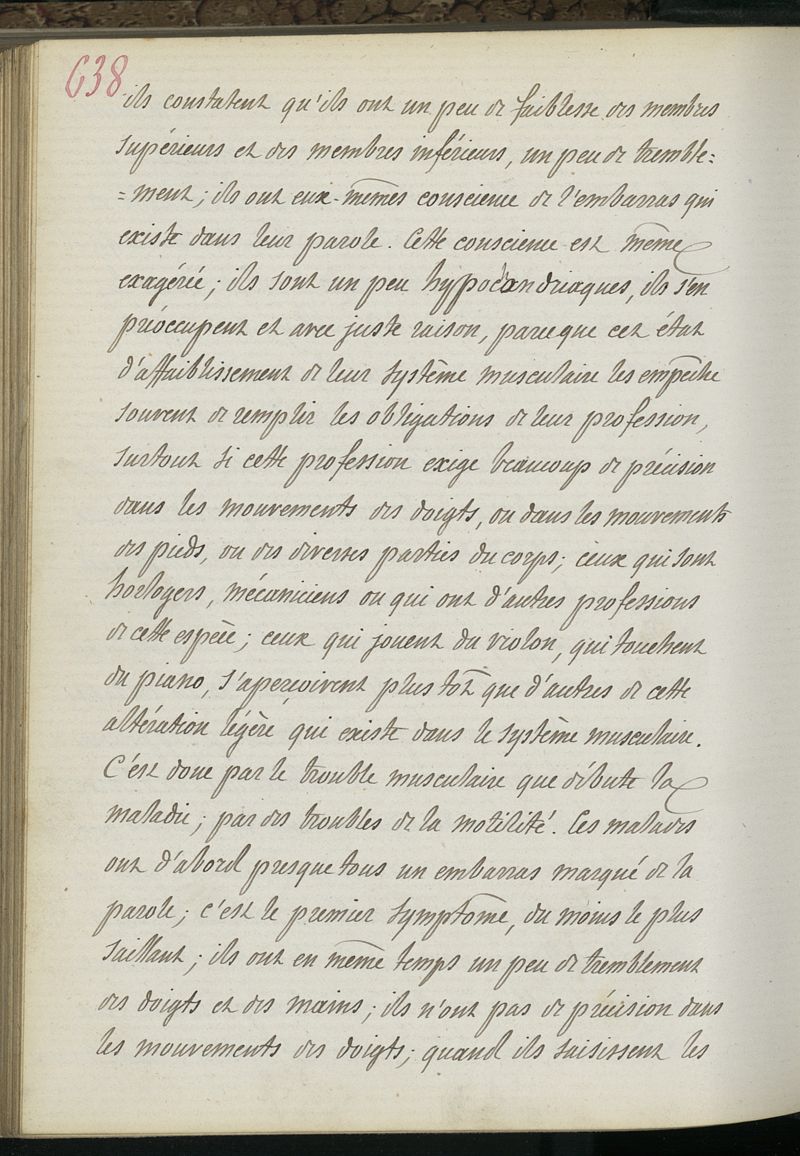 638
ils constatent qu'ils ont un peu de faiblesse des membres
supérieurs et des membres inférieurs, un peu de tremble=
=ment; ils ont eux-mêmes conscience de l'embarras qui
existe dans leur parole. Cette conscience est même
exagérée; ils sont un peu hypocondriaques, ils s'en
préoccupent et avec juste raison, parce que cet état
d'affaiblissement de leur système musculaire les empêche
souvent de remplir les obligations de leur profession,
surtout si cette profession exige beaucoup de précision
dans les mouvements des doigts, ou dans les mouvements
des pieds, ou des diverses parties du corps; ceux qui sont
horlogers, mécaniciens ou qui ont d'autres professions
de cette espèce; ceux qui jouent du violon, qui touchent
du piano, s'aperçoivent plus tôt que d'autres de cette
altération légère qui existe dans le système musculaire.
C'est donc par le trouble musculaire que débute la
maladie; par des troubles de la motilité. Ces malades
ont d'abord presque tous un embarras marqué de la
parole; c'est le premier symptôme, du moins le plus
saillant; ils ont en même temps un peu de tremblement
des doigts et des mains; ils n'ont pas de précision dans
les mouvements des doigts; quand ils saisissent les